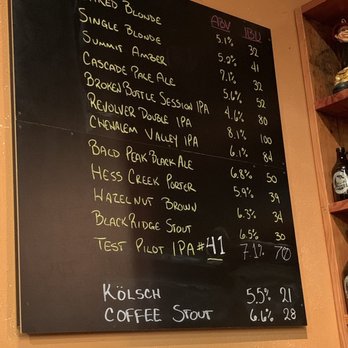 BLONDE ABV IBU
SINGLE BLONDE 5.1% 32
SUMMIT AMBER 5.2% 41
CASCADE PALE ALE 7.1% 32
BROKEN BOTTLE SESSION IPA 5.6% 52
REVOLVER DOUBLE IPA 4.6% 80
CHEHALEM VALLEY IPA 8.1% 100
6.1% 84
BALD PEAK BLACK ALE 6.8% 50
HESS CREEK PORTER 5.9% 39
HAZELNUT BROWN 6.3% 34
BLACK RIDGE STOUT 6.5% 30
TEST PILOT IPA #41 7.1% 70
KÖLSCH 5.5% 21
COFFEE STOUT 6.6% 28